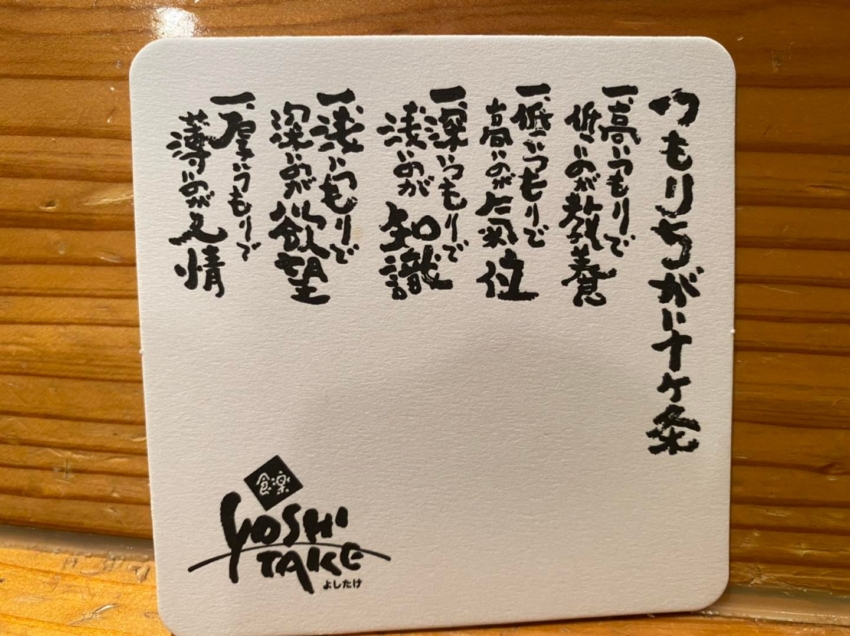 つもりちがい十ヶ条
一、高いつもりで
低いのが教養
一、低いつもりで
高いのが気位
一、深いつもりで
浅いのが知識
一、浅いつもりで
深いのが欲望
一、厚いつもりで
薄いのが人情
食楽
YOSHI
TAKE
よしたけ